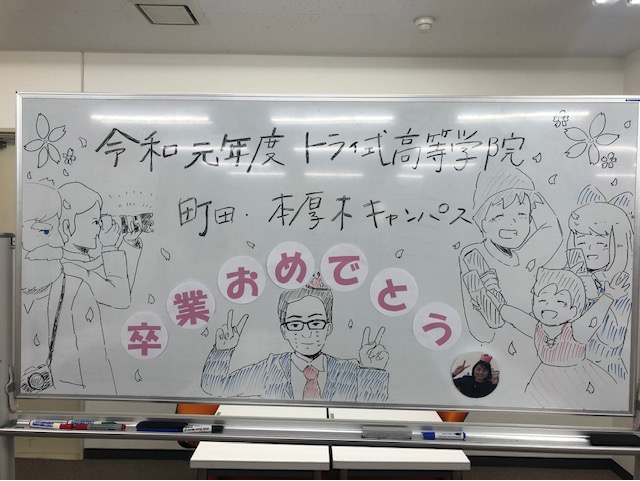 令和元年度 トライ式高等学院
町田・本厚木キャンパス
卒業おめでとう